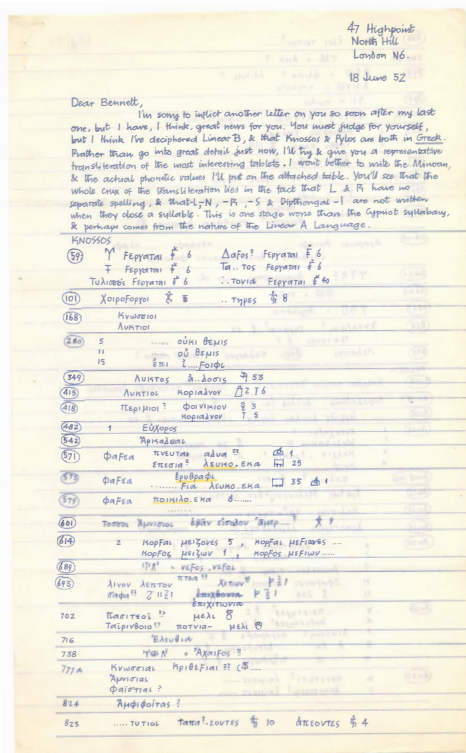 47 Highpoint
North Hill
London N6.
18 June 52
Dear Bennett,
I'm sorry to inflict another letter on you so soon after my last
one, but I have, I think, great news for you. You must judge for yourself,
but I think I've deciphered Linear B, & that Knossos & Pylos are both in Greek.
Rather than go into great detail just now, I'll try & give you a representative
transliteration of the most interesting tablets. I won't bother to write the Minoan,
& the actual phonetic values I'll put on the attached table. You'll see that the
whole crux of the transliteration lies in the fact that L & R have no
separate spelling, & that -L, -N, -R, -S & Diphthongal -I are not written
when they close a syllable. This is one stage worse than the Cypriot syllabary,
& perhaps comes from the nature of the Linear A Language.
KNOSSOS
59 Ϝεργαται 6 Δαϝος? Ϝεργαται 6
Ϝεργαται 6 Τα..τος Ϝεργαται 6
Τυλισος Ϝεργαται 6 ..τονια Ϝεργαται 40
101 Χοιροϝοργοι ..τηρες 8
168 Κνωσσιοι
Λυκτιοι
280 5 ...... ουκι θεμις
11 οὐ θεμις
15 ἐπι ἰ....ϝοιφι
349 Λυκτος ..δοσις 53
415 Λυκτιος κοριαδνον 2 Τ 6
418 Περιμιοι? φοινικιον 3
κοριαδνον Τ 5
482 1 Εὔχορος
542 Ἀρικαδααι
571 Φαϝεα πνευται αδυα?? 1
ἐπεσια? λευκο.εκα 25
Φαϝεα ἐρυθραφι
........ϝια λευκο.εκα 35 1
Φαϝεα ποικιλο.εκα 6......
601 Τοσσοι Ἀμνισιοι
614 2 κορϝαι μειζονες 5, κορϝαι μεϝιονες ....
κορϝος μειζων 1, κορϝος μεϝιων .....
689 = νεϝος.νεϝοι
695 λινον λεπτον χιτων
ἐπιχιτωνια
702 Πασιτεοῖ?? μελι
Ταϊρινθοιο?? ποτνια- μελι
716 Ἐλευθια
738 = Ἀχαιϝος?
777a Κνωσσιαι Κριθεϝιαι??
Ἀμνισιαι
Φαιστιαι?
824 Ἀμφιφοιτας?
823 .....τυτιοι ταπα?.εοντες 10 ἀπεοντες 4